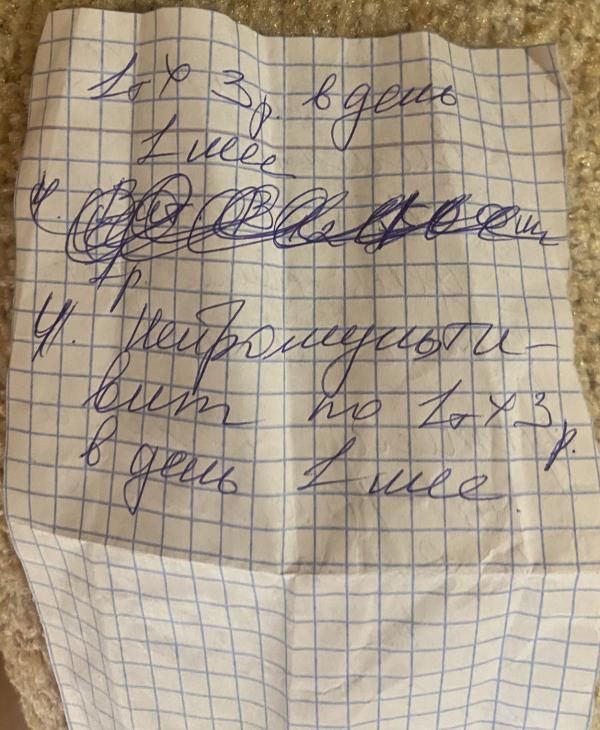 1т х 3 р. в день
1 мес
4.
1 р.
4. Нейромульти-
вит по 1т х 3 р.
в день 1 мес.